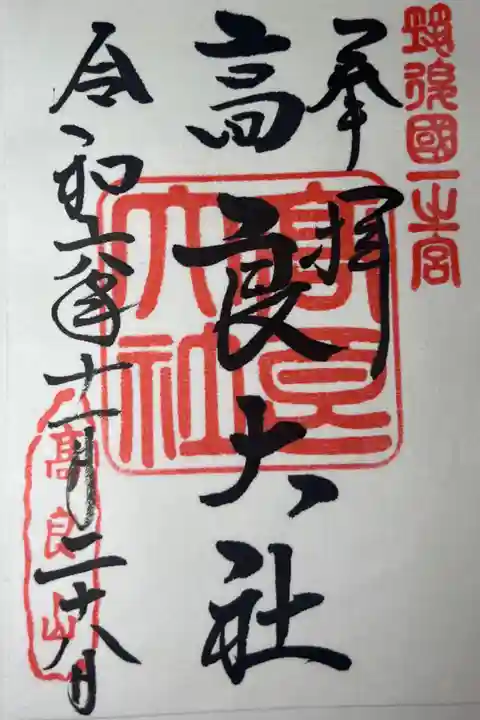 筑後國一之宮
奉拝
高良大社
高良大社
令和六年十一月二十八日
高良山